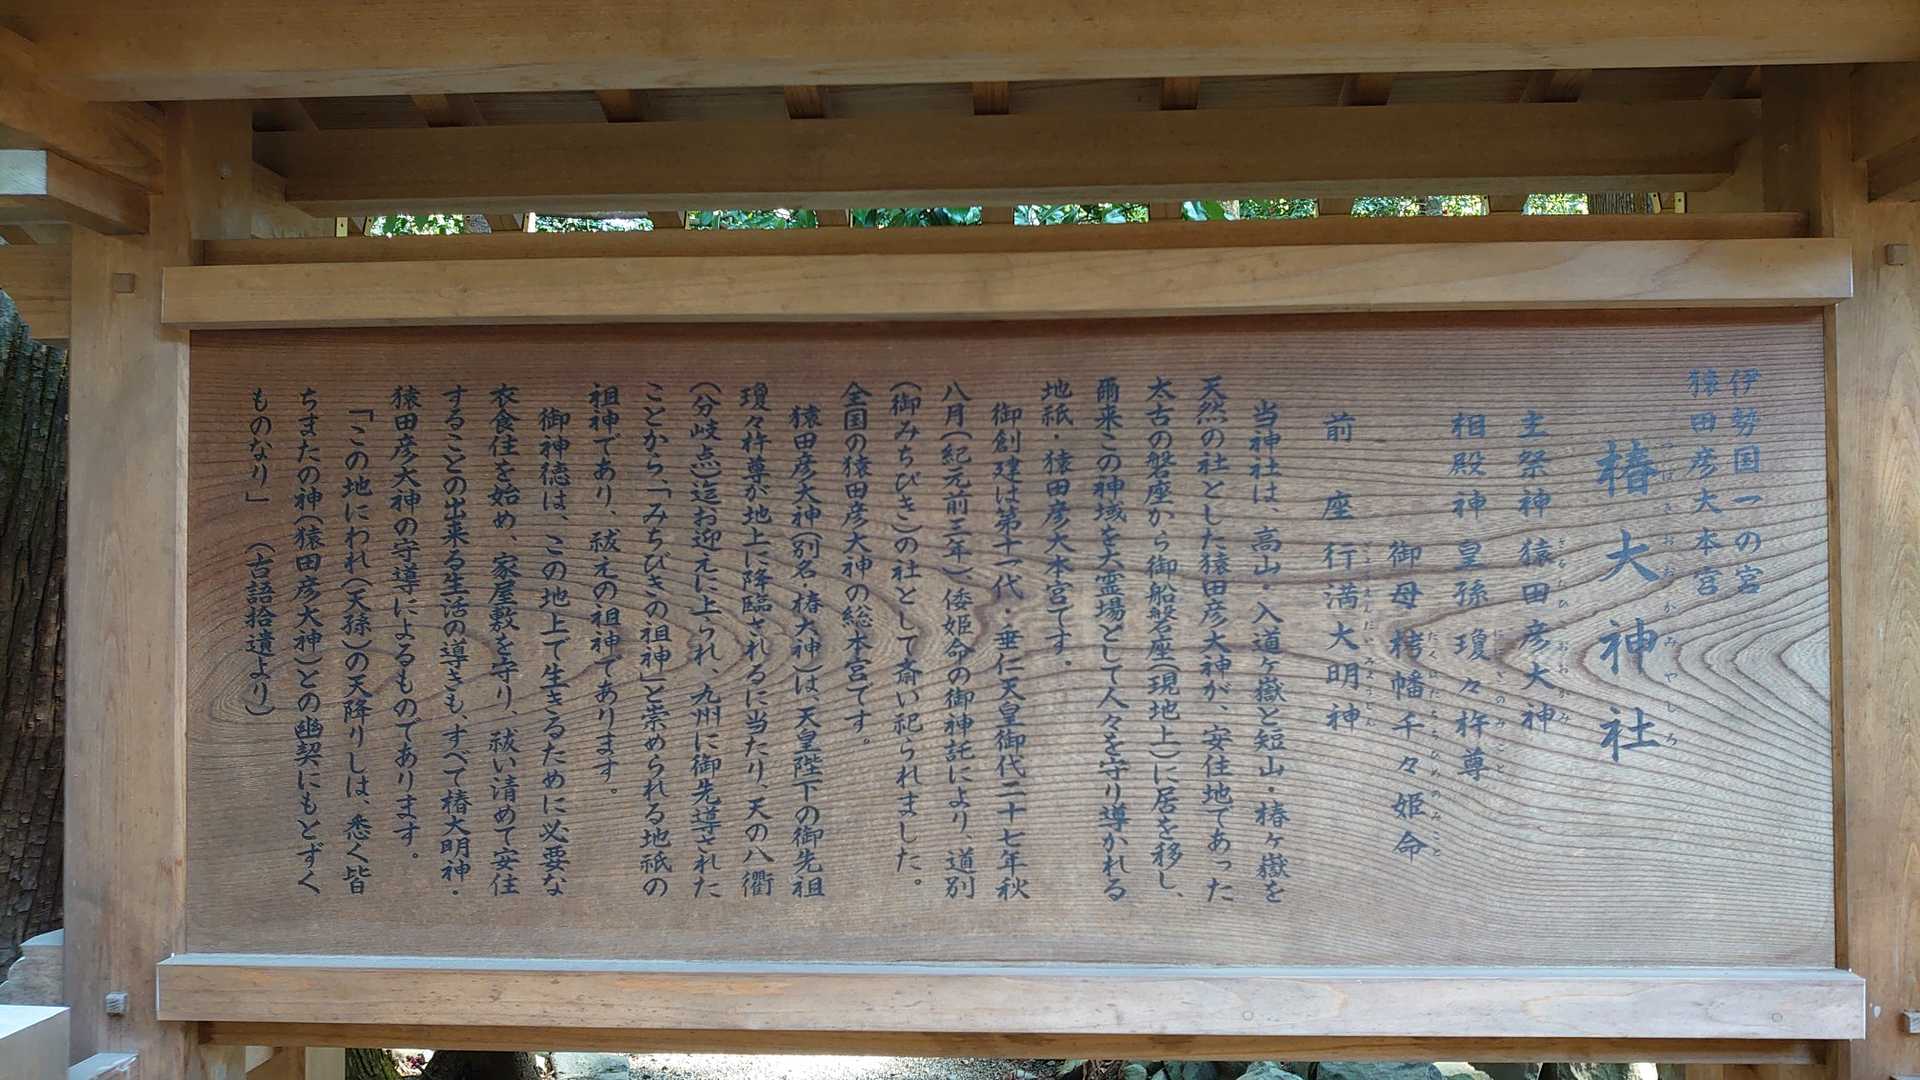 伊勢国一の宮
猿田彦大本宮
椿大神社
つばきおおかみやしろ
主祭神 猿田彦大神
さるたひこおおかみ
相殿神 皇孫 瓊々杵尊
ににぎのみこと
御母 栲幡千々姫命
たくはたちぢひめのみこと
前座 行満大明神
ぎょうまんだいみょうじん
当神社は、高山・入道ヶ嶽と短山・椿ヶ嶽を
天然の社とした猿田彦大神が、安住地であった
太古の磐座から御船磐座(現地上)に居を移し、
爾来この神域を大霊場として人々を守り導かれる
地祇・猿田彦大本宮です。
御創建は第十一代・垂仁天皇御代二十七年秋
八月(紀元前三年)、倭姫命の御神託により、道別
(御みちびき)の社として斎い祀られました。
全国の猿田彦大神の総本宮です。
猿田彦大神(別名・椿大神)は、天皇陛下の御先祖
瓊々杵尊が地上に降臨されるに当たり、天の八衢
(分岐点)迄お迎えに上られ、九州に御先導された
ことから、「みちびきの祖神」と崇められる地祇の
祖神であり、祓えの祖神であります。
御神徳は、この地上で生きるために必要な
衣食住を始め、家屋敷を守り、祓い清めて安住
することの出来る生活の導きも、すべて椿大明神・
猿田彦大神の守導によるものであります。
「この地にわれ(天孫)の天降りしは、悉く皆
ちまたの神(猿田彦大神)との幽契にもとずく
ものなり」 (古語拾遺より)